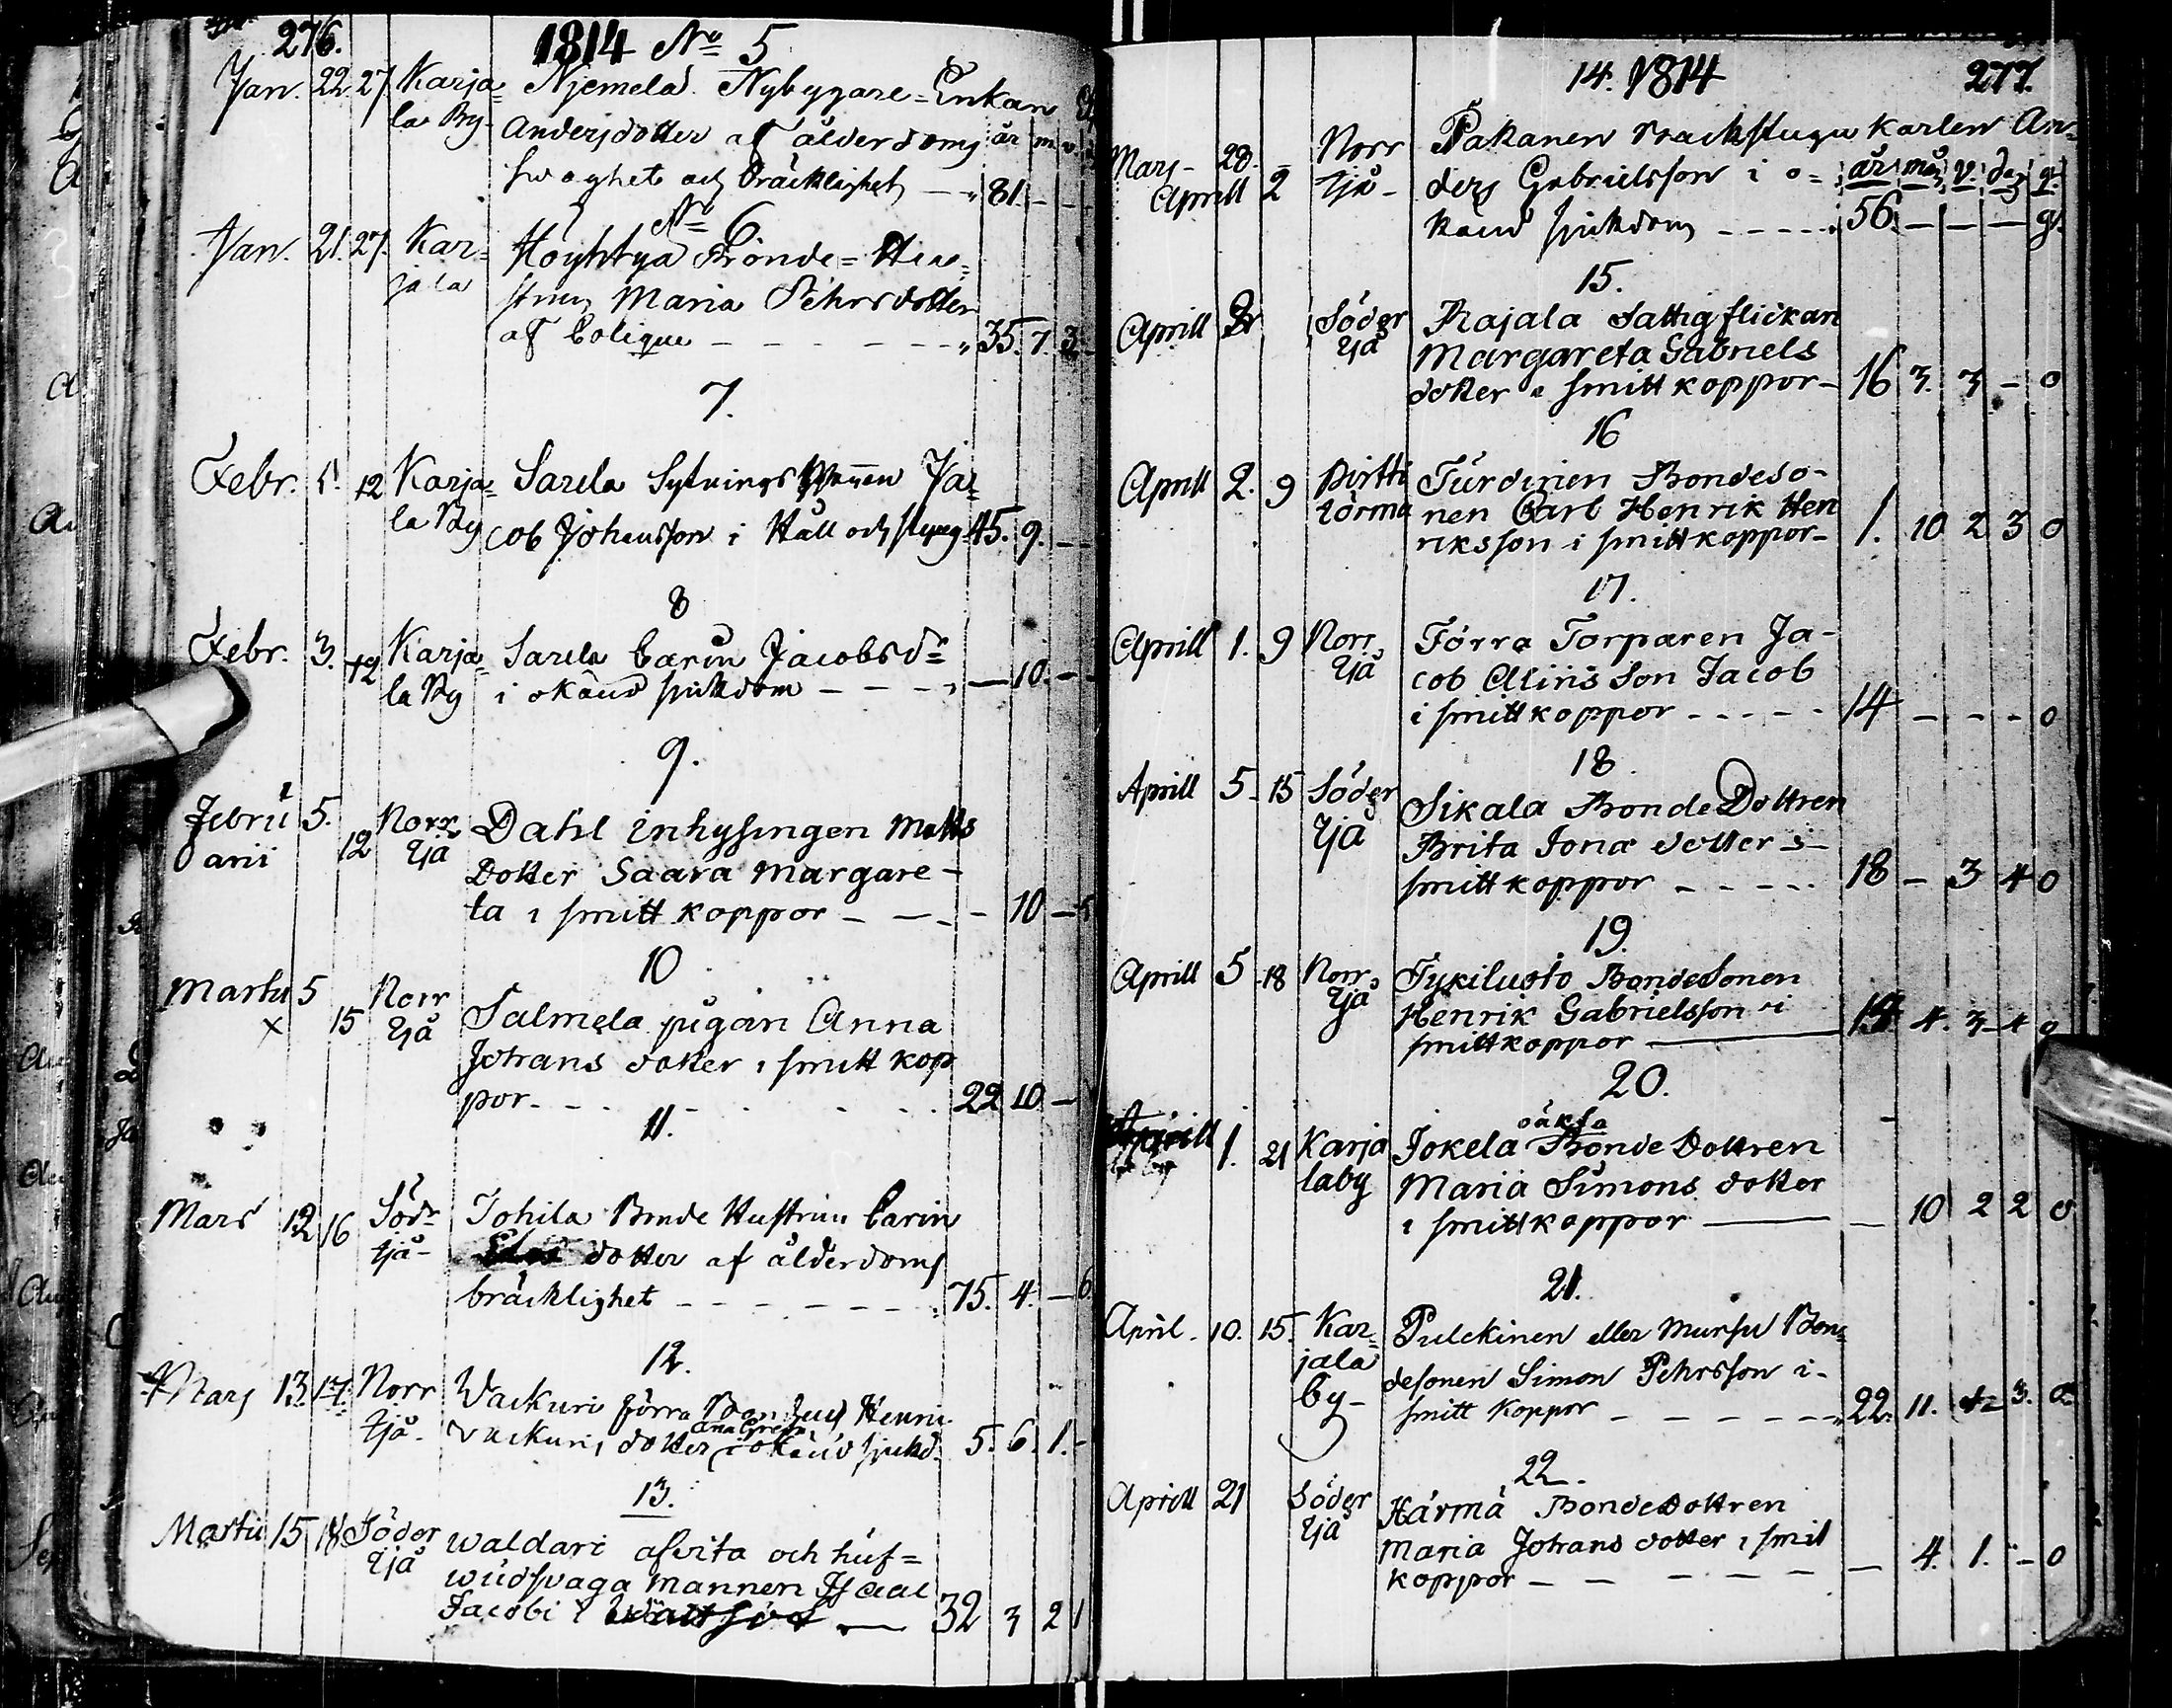 276. 1814 No 5
Jan. 22. 27. Karja= Njemelä Nybyggare=Enkan
la By. Andersdotter af ålderdoms år m v.
swaghet och bräcklighet — 81. — —
No 6
Jan. 21. 27. Kar= Höyhtyä Bonde=Hu=
jala strun Maria Pehrsdotter
af Colique — — — 35. 7. 3.
7.
Febr. 5. 12 Karja= Sarela Sytnings Mannen Ja=
la By cob Johansson i Håll och styng 45. 9. —
8
Febr. 3. 12 Karja= Sarela Carin Jacobsdr
la By i okänd sjukdom — — — 10. —
9.
Febru 5. 12 Norr Dahl inhysingen Matts
arii tjä Dotter Saara Margare-
ta i smitt koppor — — — 10 —
10
Martii 5 15 Norr Salmela pigan Anna
x tjä Johans dotter i smitt kop
por - - - 22 10 —
11.
Mars 12 16 Södr Johila Bonde Hustrun Carin
tjä- dotter af ålderdoms
bräcklighet — — — 75. 4. — 6.
12.
Mars 13. 17. Norr Wackuri förra Bondens Henri
Ana Greta
tjä. Vackuris dotter i okänd sjukd. 5. 6. 1. -
13.
Martii 15 18 Söder Waldari afvita och huf=
tjä wudsvaga mannen Isaac
Jacobi i 32 3 2 1
14. 1814 277.
Mars - 28. - Norr Pakanen Backstugu Karlen An=
Aprill 2 tjä- ders Gabrielsson i o= år mån v. dag gr.
känd sjukdom - - - - 56. — — — g.
15.
Aprill 2 Söder Rajala Fattig flickan
tjä Margareta Gabriels
dotter i smitt koppor - 16 3. 3 - 0
16
Aprill 2. 9 Pirtti Turdinen Bondeso-
törmä nen Carl Henrik Hen
riksson i smitt koppor - 1. 10 2 3 0
17.
Aprill 1. 9 Norr Förra Torparen Ja-
tjä cob Alins Son Jacob
i smitt koppor - - - - 14 - - - 0
18.
Aprill 5 - 15 Söder Sikala Bonde Dottren
tjä Brita Jonæ dotter i
smitt koppor - - - - 18 - 3 4 0
19.
Aprill 5 - 18 Norr Tykiluoto BondeSonen
tjä Henrik Gabrielsson i
smitt koppor — 4. 3 4
20.
oäkta
Aprill 1. 21 Karja Jokela Bonde Dottren
laby Maria Simons dotter
i smittkoppor — — 10 2 2 0
21.
April. 10. 15. Kar= Pulckinen eller Mursu Bon=
jala desonen Simon Pehrsson i-
by- smitt koppor — — — 22. 11. 3.
22.
Aprill 21 Söder Härmä BondeDottren
tjä Maria Johans dotter i smit
koppor — — — — 4. 1. - 0